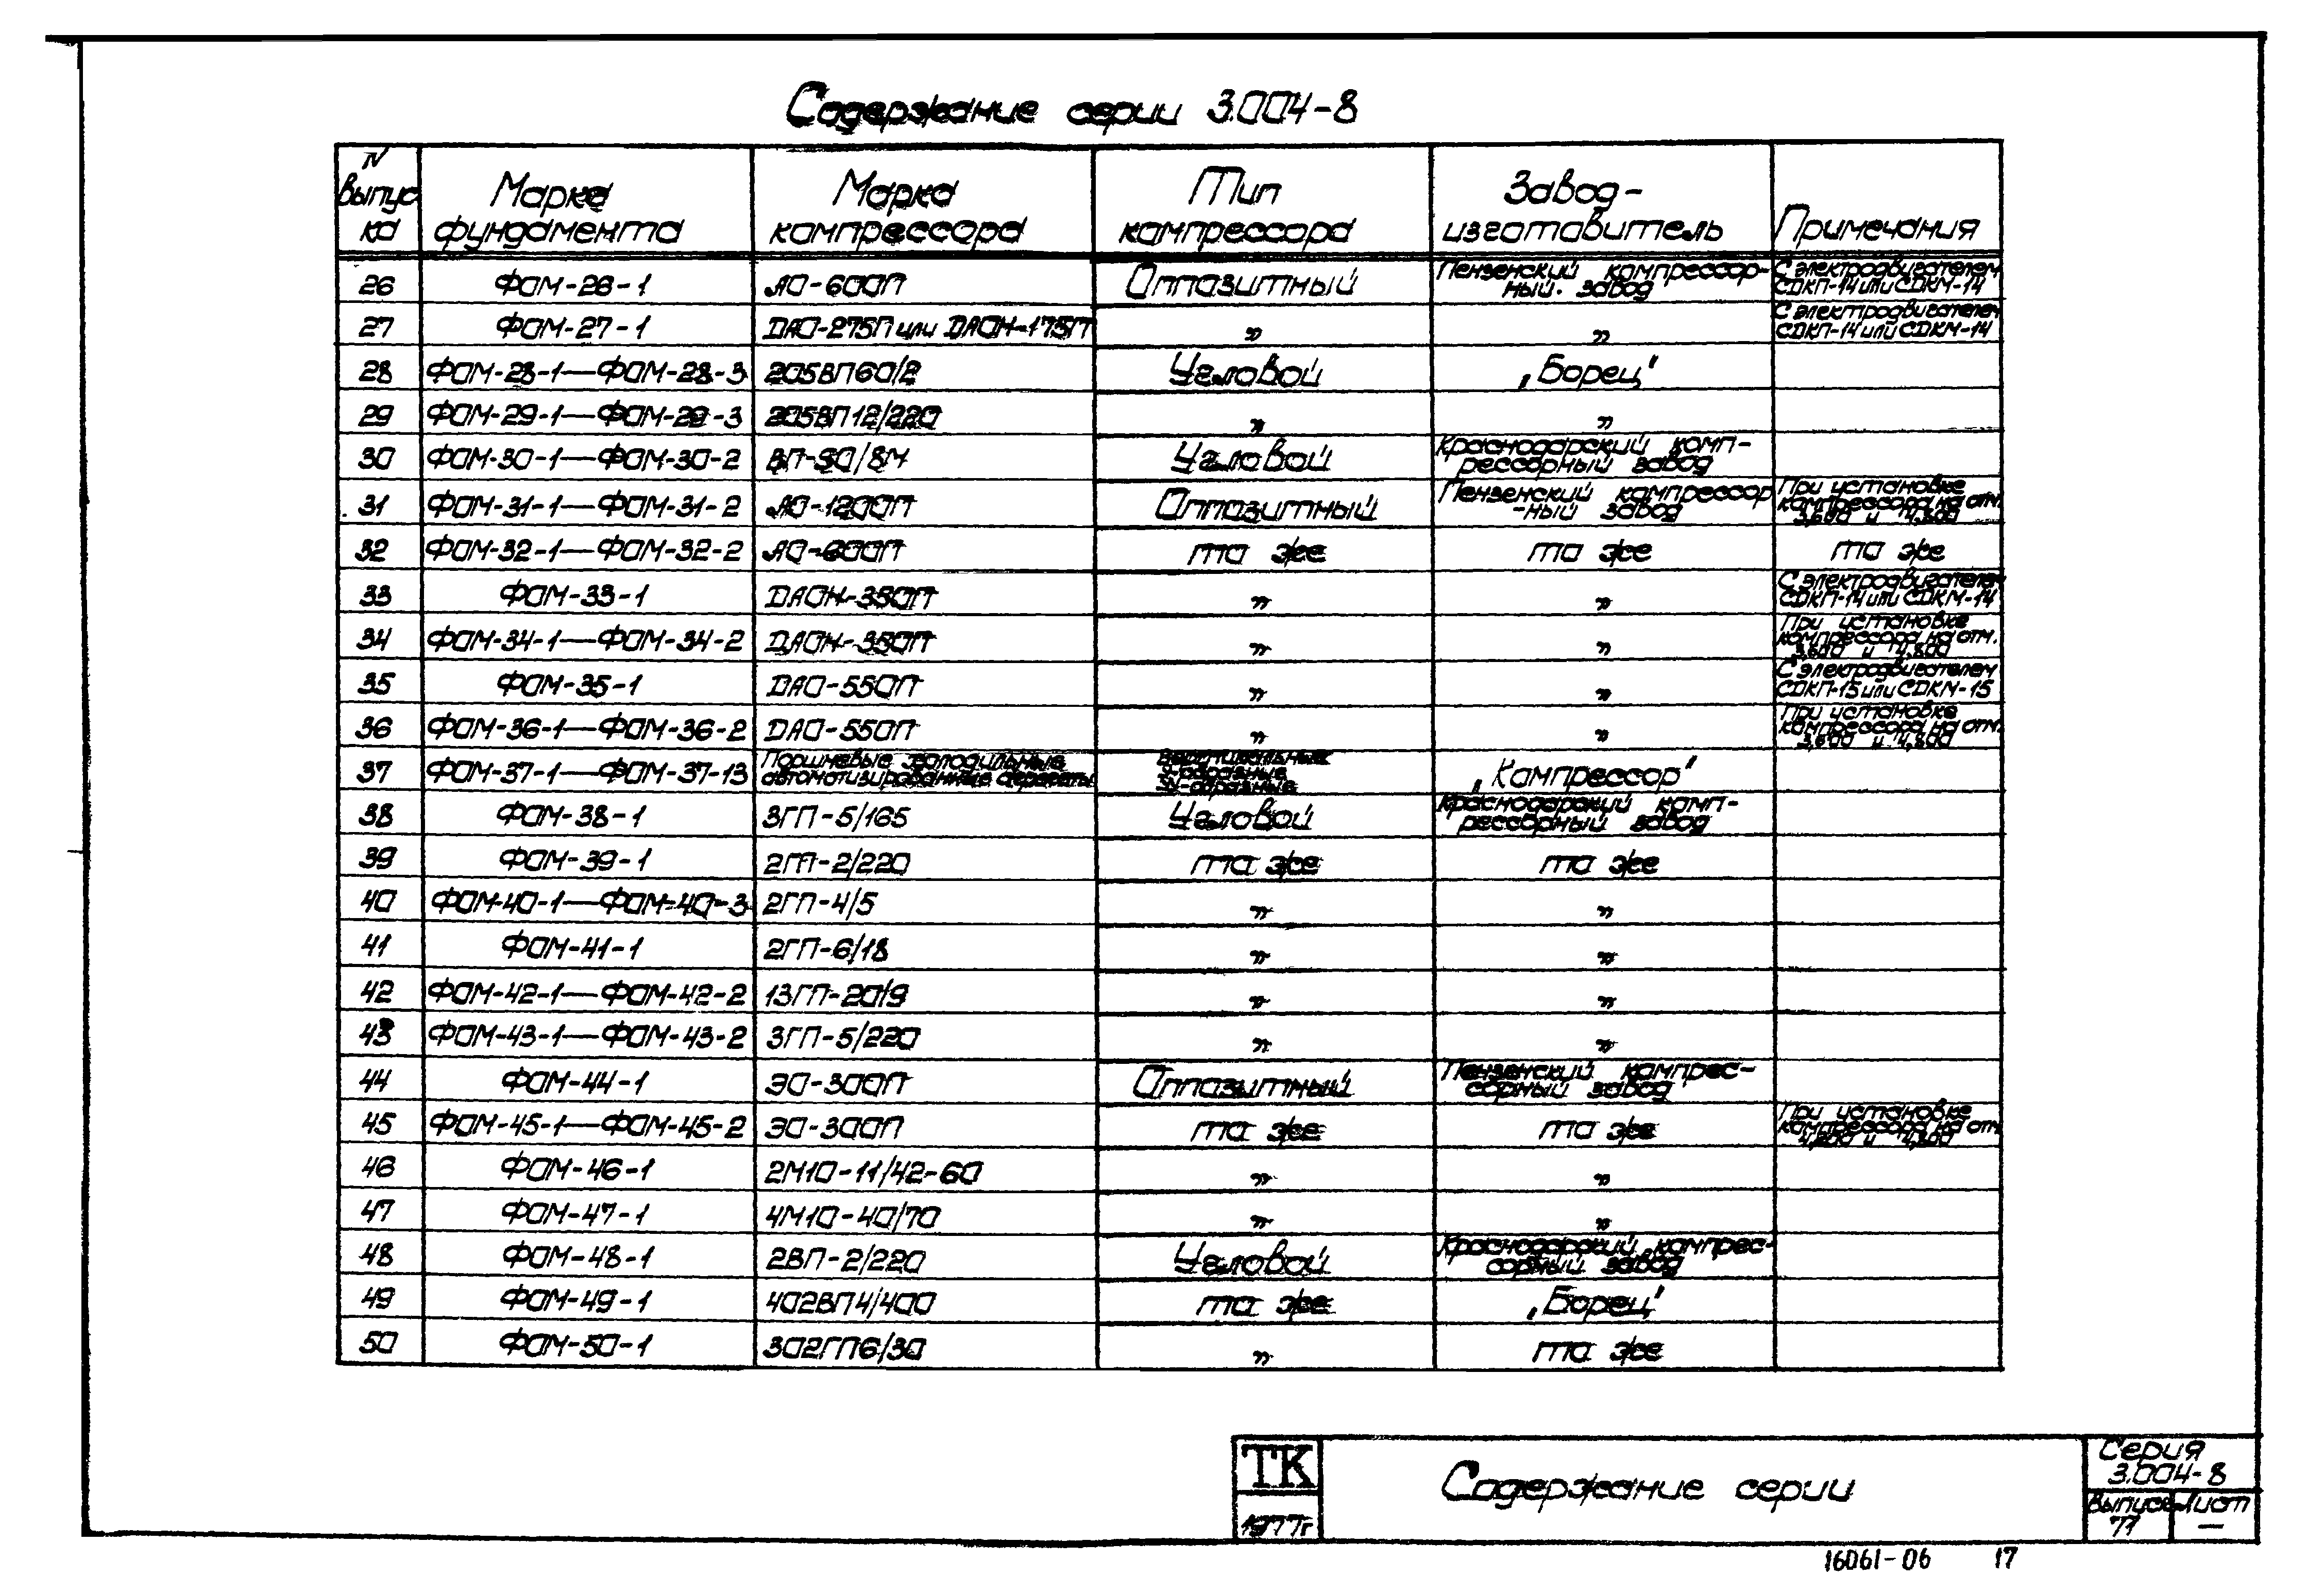 Содержание серии 3.004-8
N выпуска Марка фундамента Марка компрессора Тип компрессора Завод-изготовитель Примечания
26 ФОМ-26-1 АО-600П Оппозитный Пензенский компрессор-ный. завод С электродвигателем СДКП-14 или СДКМ-14
27 ФОМ-27-1 DAO-275П или DAOH-175П " " С электродвигателем СДКП-14 или СДКМ-14
28 ФОМ-28-1—ФОМ-28-3 205ВП60/2 Угловой „Борец"
29 ФОМ-29-1—ФОМ-29-3 205ВП12/220 " "
30 ФОМ-30-1—ФОМ-30-2 ВП-50/8М Угловой Краснодарский комп-рессорный завод
31 ФОМ-31-1—ФОМ-31-2 АО-1200П Оппозитный Пензенский компрессор-ный завод При установке компрессора на отм. 3,600 и 4,800
32 ФОМ-32-1—ФОМ-32-2 АО-600П то же то же то же
33 ФОМ-33-1 DAOH-350П " " С электродвигателем СДКП-14 или СДКМ-14
34 ФОМ-34-1—ФОМ-34-2 DAOH-350П " " При установке компрессора на отм. 3,600 и 4,800
35 ФОМ-35-1 DAO-550П " " С электродвигателем СДКП-15 или СДКМ-15
36 ФОМ-36-1—ФОМ-36-2 DAO-550П " " При установке компрессора на отм. 3,600 и 4,800
37 ФОМ-37-1—ФОМ-37-13 Поршневые холодильные автоматизированные агрегаты Вертикальные У-образные образные „Компрессор"
38 ФОМ-38-1 3ГП-5/165 Угловой Краснодарский комп-рессорный завод
39 ФОМ-39-1 2ГП-2/220 то же то же
40 ФОМ-40-1—ФОМ-40-3 2ГП-4/5 " "
41 ФОМ-41-1 2ГП-6/18 " "
42 ФОМ-42-1—ФОМ-42-2 13ГП-20/9 " "
43 ФОМ-43-1—ФОМ-43-2 3ГП-5/220 " "
44 ФОМ-44-1 ЭО-300П Оппозитный Пензенский компрес-сорный завод
45 ФОМ-45-1—ФОМ-45-2 ЭО-300П то же то же При установке компрессора на отм. 4,200 и 4,800
46 ФОМ-46-1 2М10-11/42-60 " "
47 ФОМ-47-1 4М10-40/70 " "
48 ФОМ-48-1 2ВП-2/220 Угловой Краснодарский компрес-сорный завод
49 ФОМ-49-1 402ВП4/400 то же „Борец"
50 ФОМ-50-1 302ГП6/30 " то же
ТК
1977г
Содержание серии
Серия
3.004-8
Выпуск Лист
71 —
16061-06 17